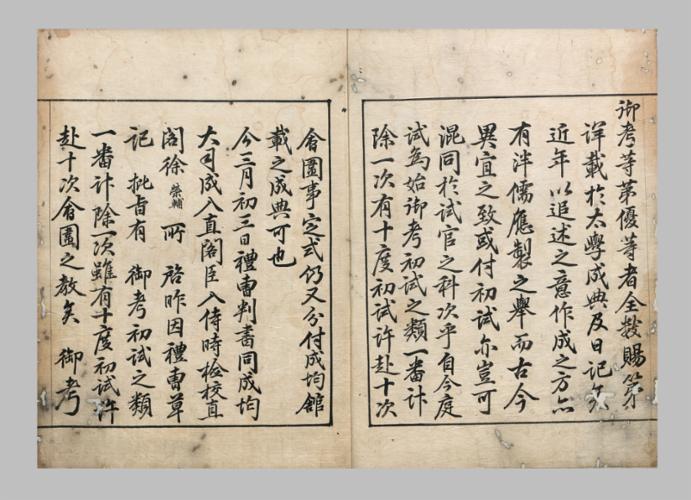 御考等第優等者全數賜第
詳載於太學成典及日記矣
近年以追述之意作成之方亦
有泮儒應製之擧而古今
異宜之致或付初試亦豈可
混同於試官之科次乎自今庭
試為始御考初試之類一番計
除一次有十度初試許赴十次
會圍事定式仍又分付成均館
載之成典可也
今三月初三日禮曹判書同成均
大司成入直閣臣入侍時檢校直
閣徐榮輔所 啓昨因禮曹草
記 批旨有 御考初試之類
一番計除一次雖有十度初試許
赴十次會圍之教矣 御考